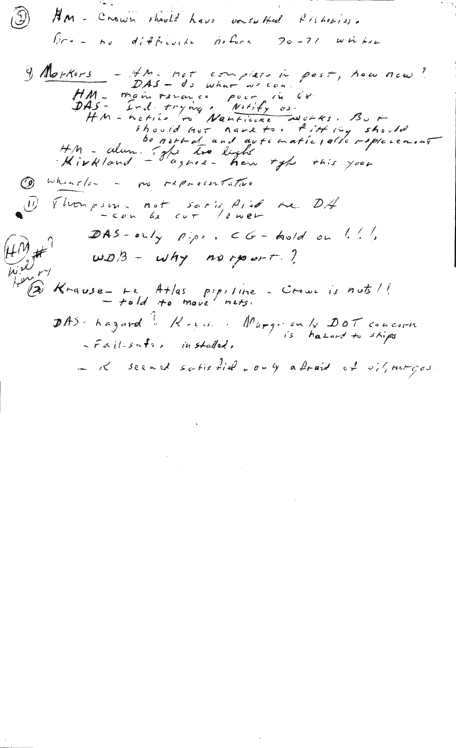 ⑧ HM - Crown should have consulted fisheries.
- no difficulty before 70-71 winter
9) Markers - HM - not complete in past, how now?
DAS - do what we can.
HM - maintenance poor in 68
DAS - Ind. trying. Notify us.
HM - notice to Nanticoke works. But
should not have to. Lighting should
be normal and automatic, also replacement
HM - alum. type too light
Kirkland - agree - new type this year
⑩ Wheeler - no representative
⑪ Thompson - not satisfied re DH
- can be cut lower
DAS - only pipe. CG - hold on!!!.
WDB - why no report?
HM #?
⑫ Krause - re Atlas pipeline - Crown is nuts!!
- told to move nets.
DAS - hazard? . only DOT concern
is hazard to ships
- Fail-safes installed.
- K seemed satisfied - only afraid of oil, not gas.